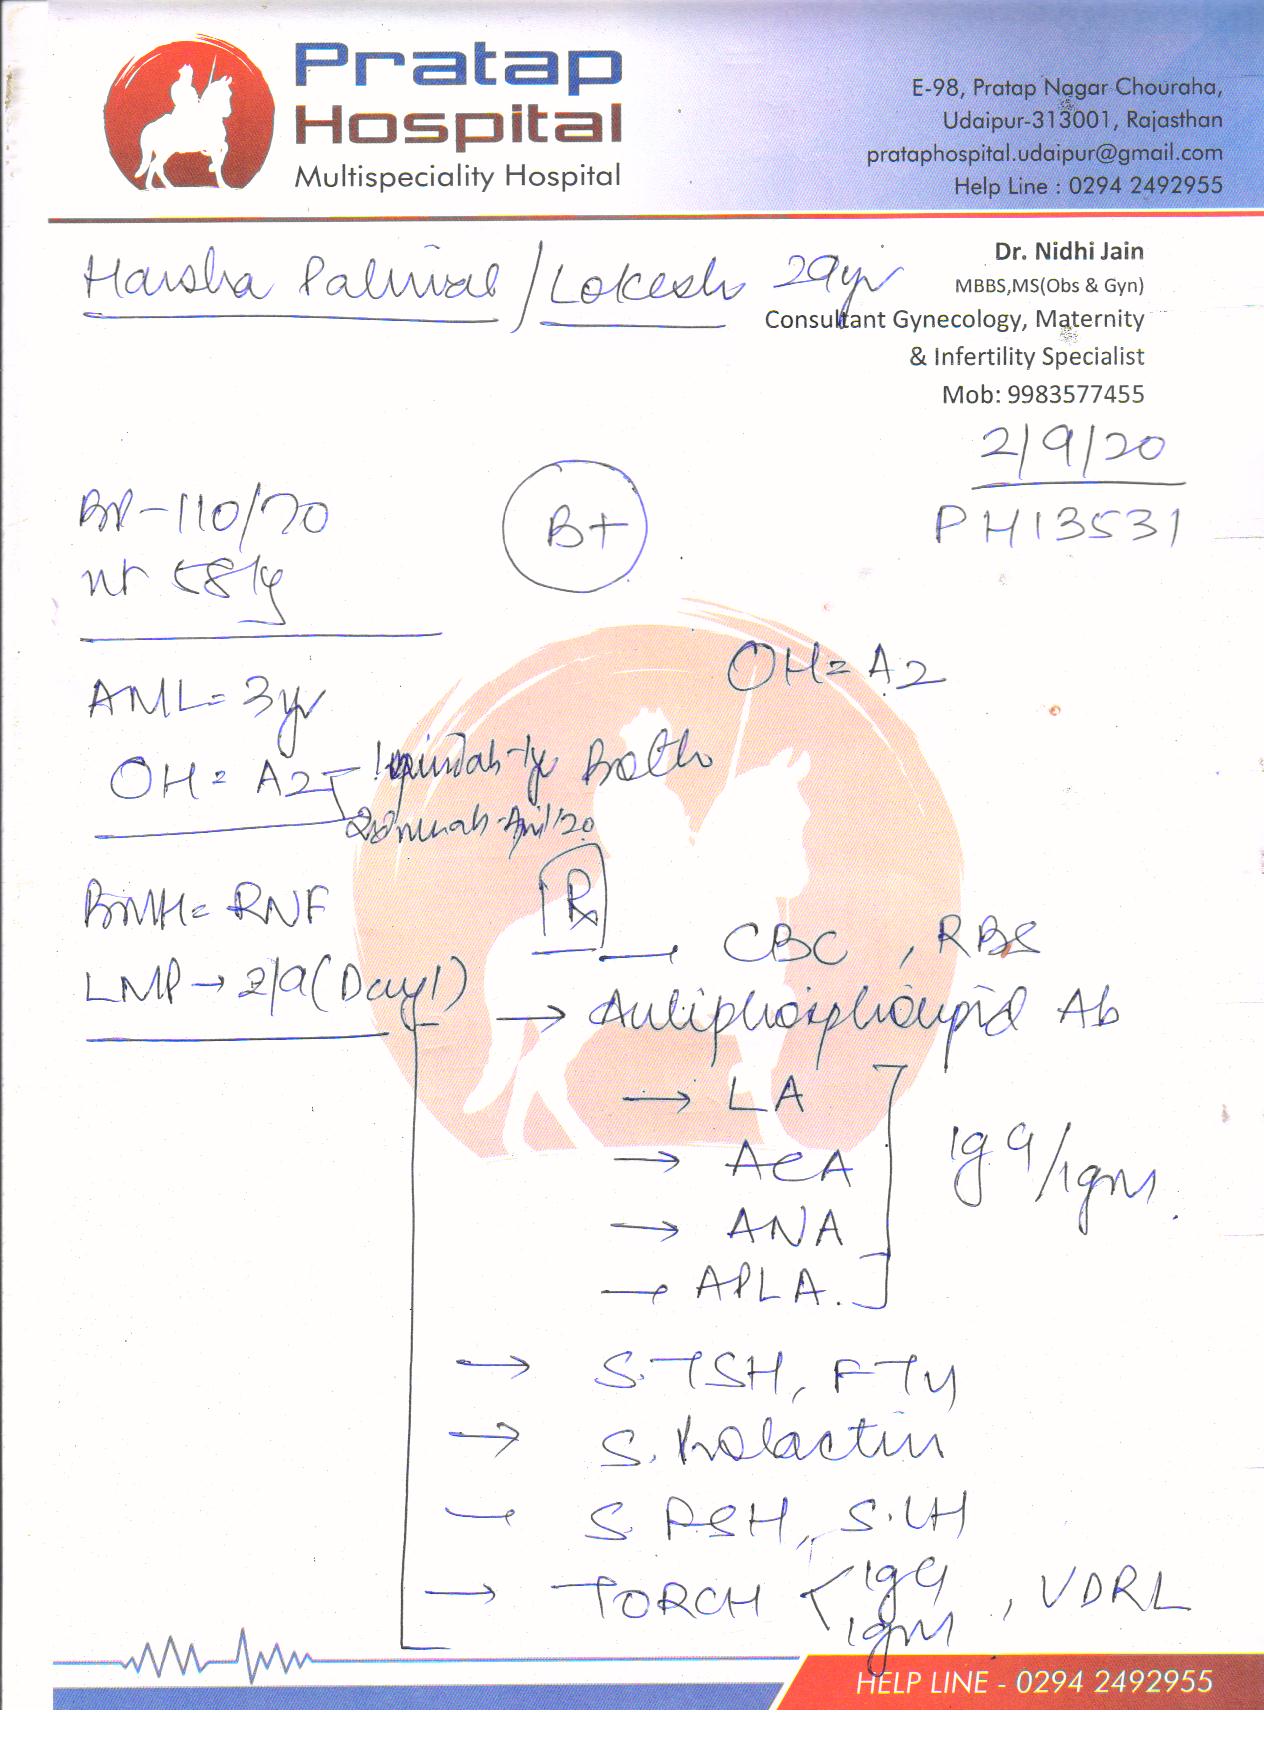 Pratap
Hospital
Multispeciality Hospital
E-98, Pratap Nagar Chouraha,
Udaipur-313001, Rajasthan
prataphospital.udaipur@gmail.com
Help Line : 0294 2492955
Harsha Paliwal / Lokesh 29yr
Dr. Nidhi Jain
MBBS,MS(Obs & Gyn)
Consultant Gynecology, Maternity
& Infertility Specialist
Mob: 9983577455
2/9/20
PH13531
BP - 110/70
B+
wt 58kg
OH = A2
AML = 3yr
OH = A2
April'20
BMH = RNF
Rx
→ CBC, RBS
LMP → 2/9 (Day1)
→ Antiphospholipid Ab
→ LA
→ ACA
IgG/IgM.
→ ANA
→ APLA.
→ S.TSH, FT4
→ S. Prolactin
→ S. FSH, S.LH
→ TORCH < IgG
IgM
, VDRL
HELP LINE - 0294 2492955